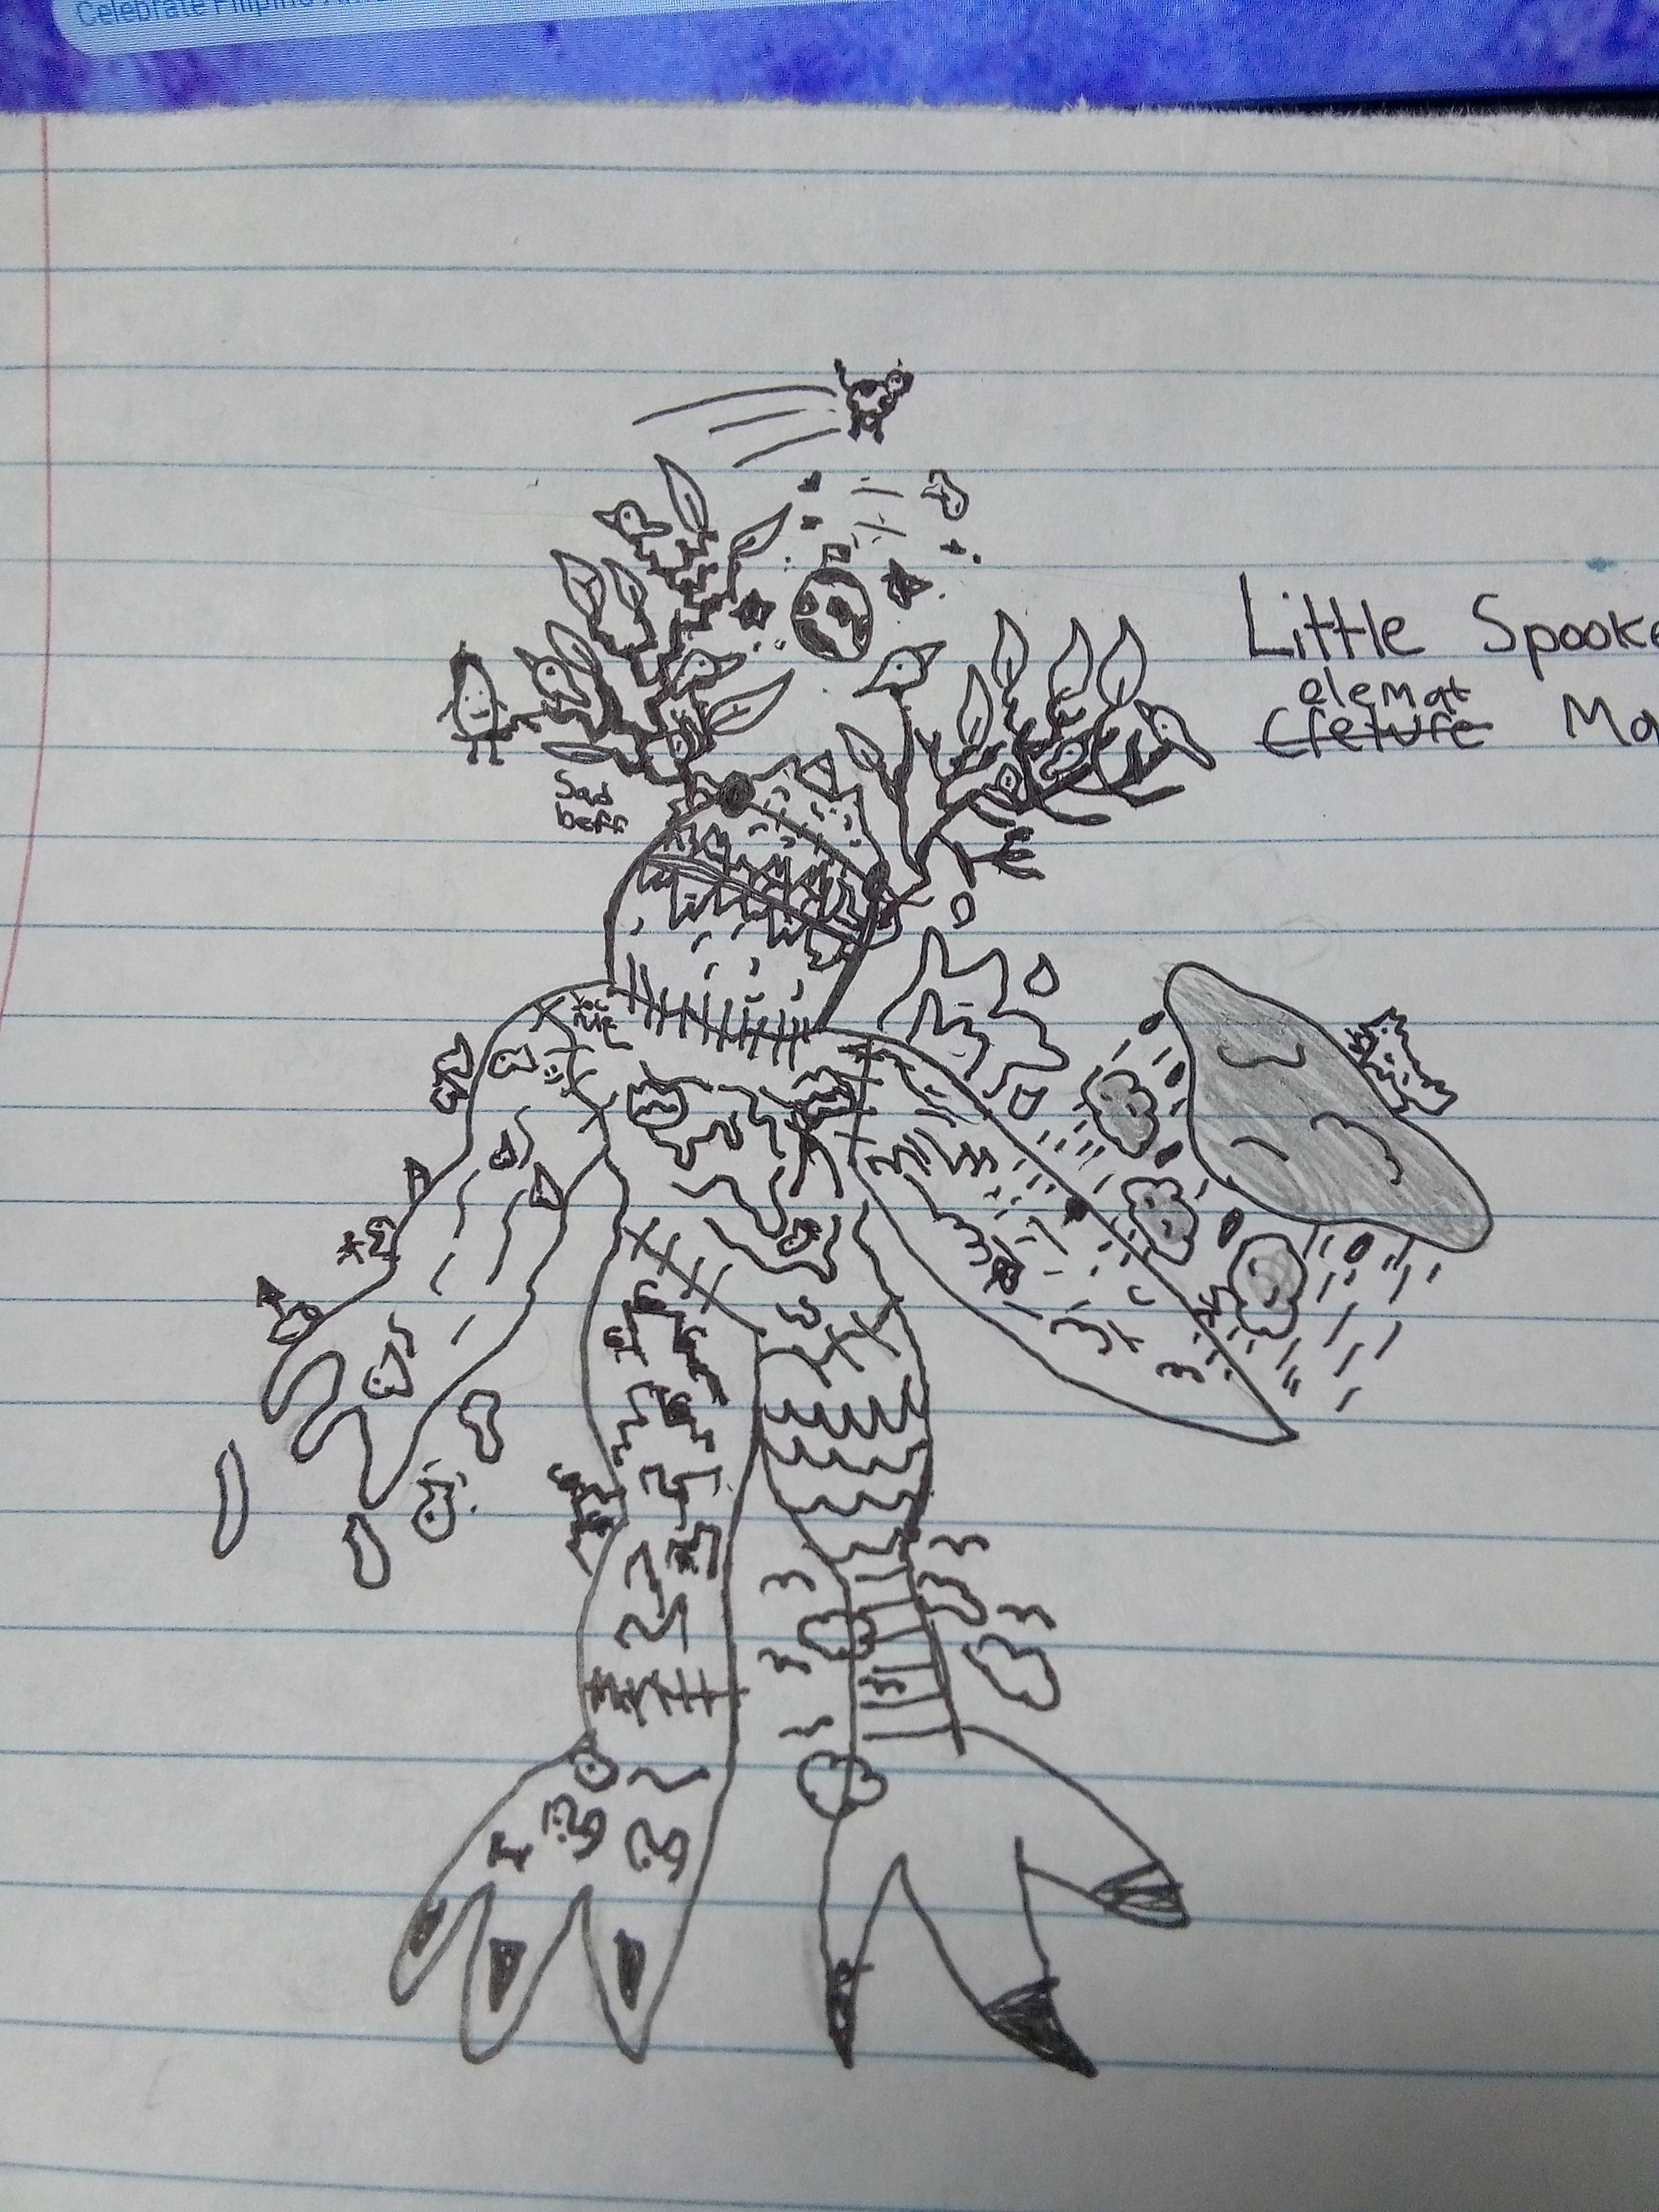 Celebrate Filipino
Little Spooke
elemat
Creture Ma
Sad
beff